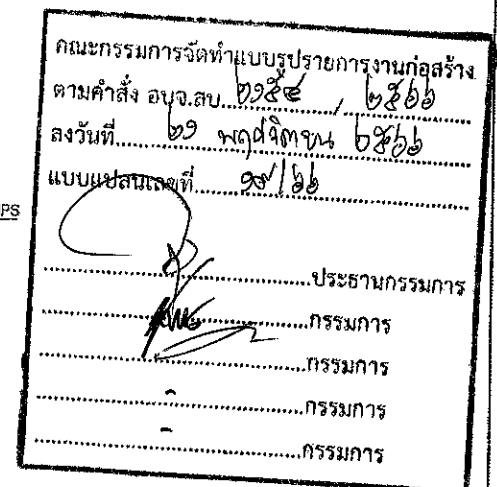 คณะกรรมการจัดทำแบบรูปรายการงานก่อสร้าง
ตามคำสั่ง อบจ.สบ. ๒๑๕๔ / ๒๕๖๖
ลงวันที่ ๒๑ พฤศจิกายน ๒๕๖๖
แบบแปลนเลขที่ /๖๖
UPS
ประธานกรรมการ
กรรมการ
กรรมการ
- กรรมการ
- กรรมการ